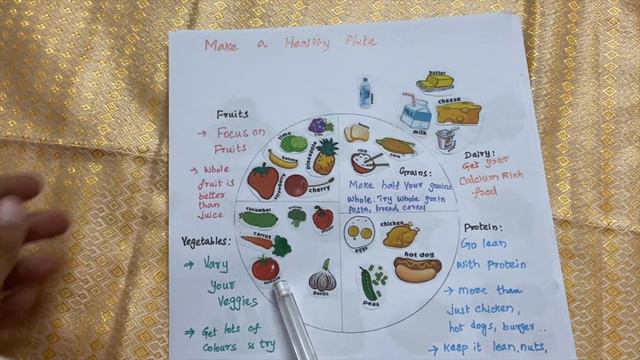 Make a Healthy Plate
Fruits
→ Focus on
Fruits
→ Whole
fruit is
better
than
juice
Vegetables:
→ Vary
your
Veggies
→ Get lots of
colours & try
lime
banana
pineapple
strawberry
cherry
rice
corn
Grains:
Make half your grains
whole. Try whole grain
pasta, bread, cereal
butter
milk
cheese
Dairy:
Get your
Calcium Rich
food
cucumber
carrot
garlic
chicken
eggs
hot dog
peas
Protein:
Go lean
with protein
→ more than
just chicken,
hot dogs, burger...
→ keep it lean, nuts,